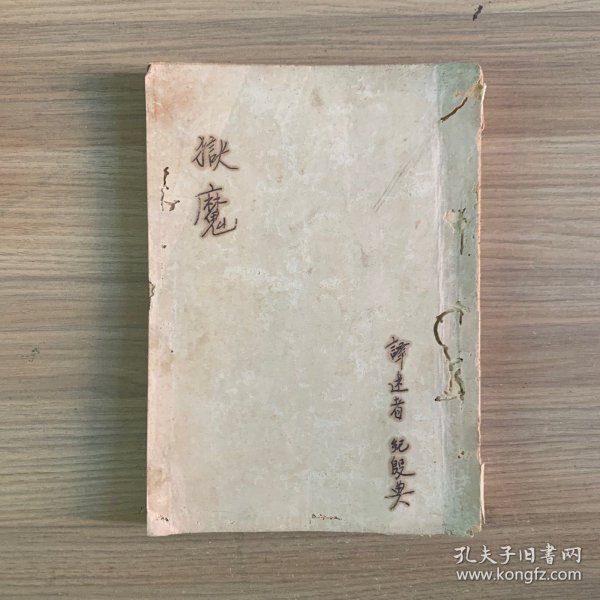 獄魔
譯述者 紀殷典
孔夫子旧書网
www.kongfz.com